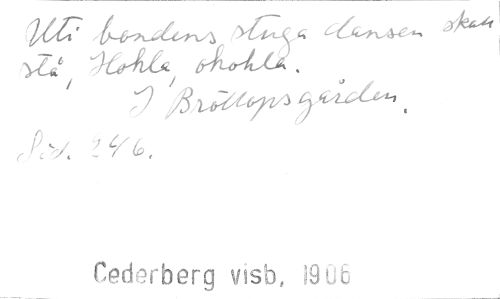 Uti bondens stuga dansen skall
stå, Hohla, ohohla.
I Bröllopsgården.
Sid. 246.
Cederberg visb, 1906